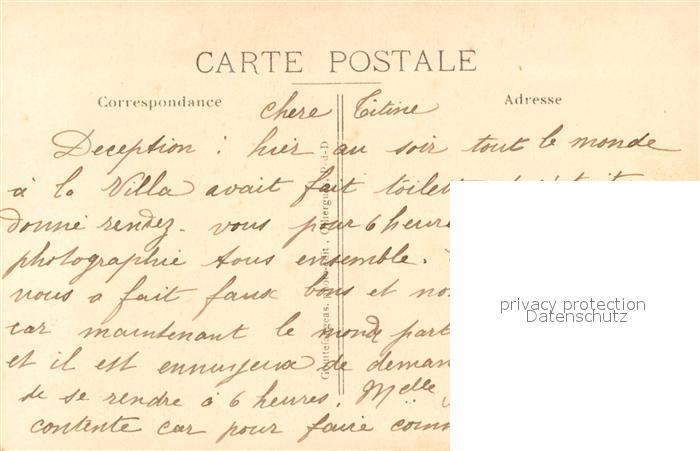 CARTE POSTALE
Correspondance
Adresse
chere Titine
Deception : hier au soir tout le monde
à la Villa avait fait
donné rendez-vous pour 6 heures
photographié tous ensemble.
vous a fait faux bons et
car maintenant le monde part
et il est ennuyeux de
de se rendre à 6 heures. Melle
contente car pour faire
privacy protection
Datenschutz